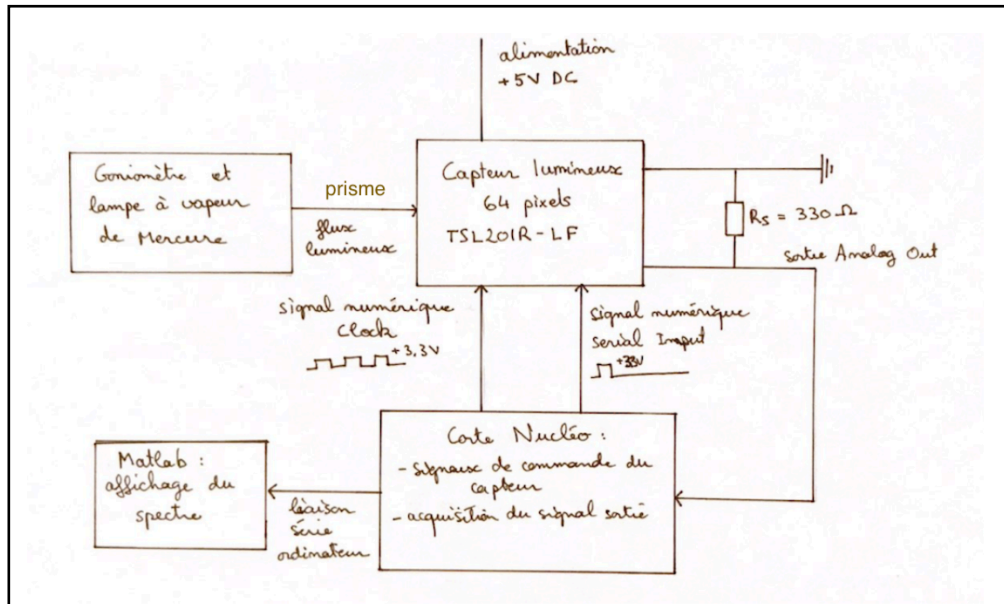 alimentation
+5V DC
Goniomètre et
lampe à vapeur
de Mercure
prisme
flux
lumineux
Capteur lumineux
64 pixels
TSL201R-LF
Rs = 330 Ω
sortie Analog Out
signal numérique
Clock
+3.3V
signal numérique
serial Imput
+3.3V
Carte Nucléo :
- signaux de commande du
capteur
- acquisition du signal sortie
Matlab :
affichage du
spectre
liaison
série
ordinateur